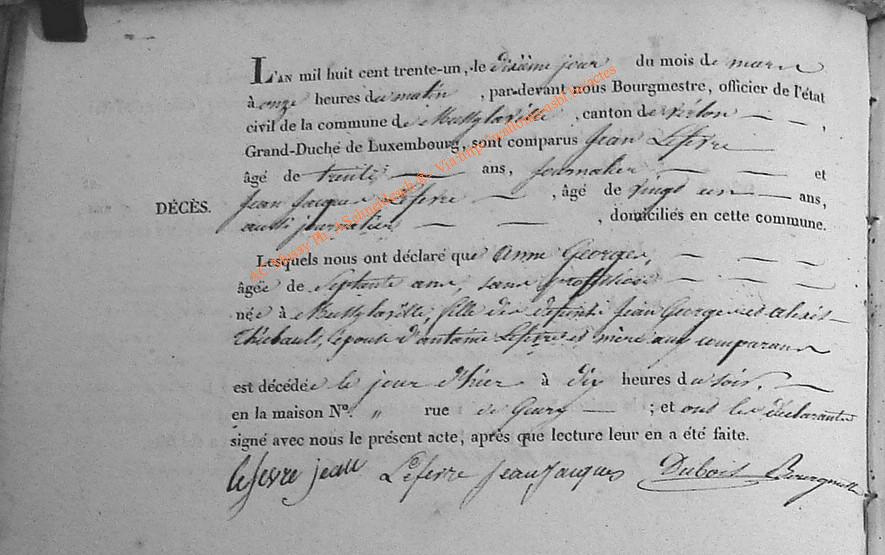 L'AN mil huit cent trente-un, le dixième jour du mois de mars
à onze heures du matin, par-devant nous Bourgmestre, officier de l'état
civil de la commune de Mussylaville, canton de virton — — ,
Grand-Duché de Luxembourg, sont comparus Jean Lefevre —
âgé de trente — ans, journalier — et
DÉCÈS. Jean Jacques Lefevre — , âgé de vingt un — ans,
aussi journalier — — , domiciliés en cette commune.
Lesquels nous ont déclaré que Anne Georges, — — —
âgée de Septante ans, sans profession — — —
née à Mussylaville, fille des défunts Jean Georges et
Thiebault, épouse d'antoine Lefevre et mère aux comparans
est décédée le jour d'hier à dix heures du soir. —
en la maison N°. „ rue de — ; et ont les déclarants
signé avec nous le présent acte, après que lecture leur en a été faite.
lefevre jean Lefevre Jean Jacques Dubois Bourgmestre